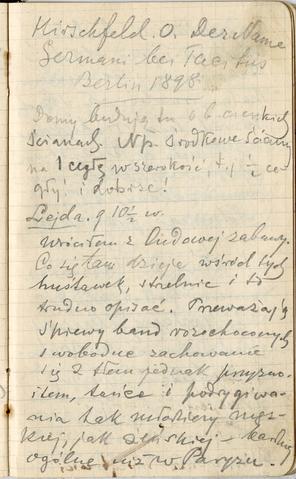 Hirschfeld O. Der Name
Germani bei Tacitus
Berlin 1898.
Domy budują tu o b. cienkich
ścianach. Np. środkowe ściany
na 1 cegłę w szerokości t. j. ½ ce-
gły! i dobrze!
Lejda. g 10½ w.
Wróciłem z ludowej zabawy.
Co się tam dzieje wśród tych
huśtawek, strzelnic i t d
trudno opisać. Przeważają
śpiewy band rozochoconych
swobodne zachowanie
się z tłem jednak przyzwo-
item, tańce i podrygiwa-
nia tak młodzieży męs-
kiej, jak żeńskiej –
ogólne niż w Paryżu.